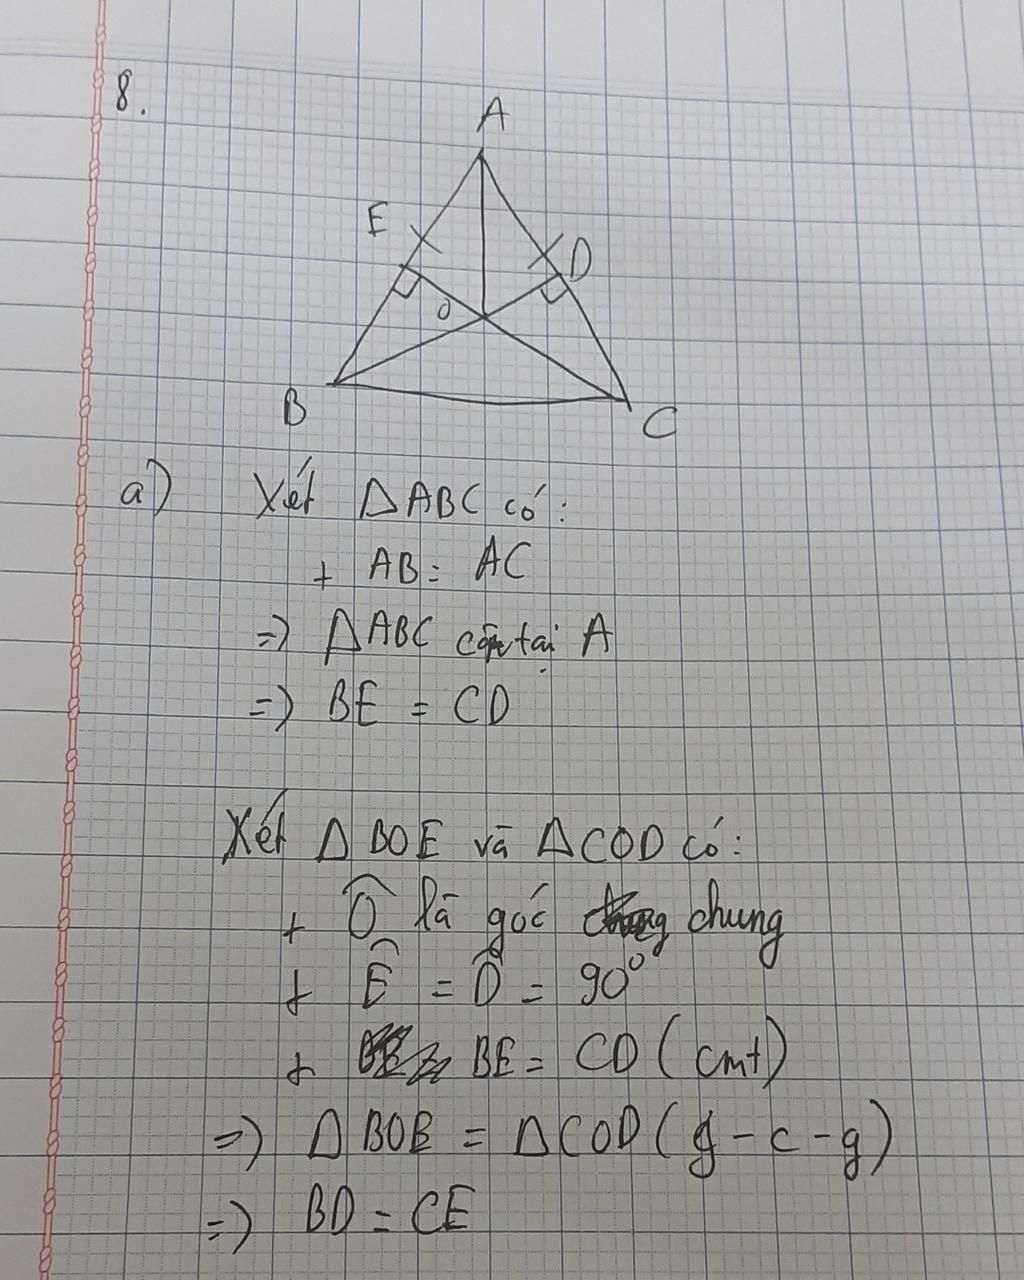 8.
A
E
D
O
B
C
a) Xét ΔABC có:
+ AB = AC
=> ΔABC cân tại A
=> BE = CD
Xét ΔBOE và ΔCOD có:
+ Ô là góc chung
+ Ê = D̂ = 90°
+ BE = CD (cmt)
=> ΔBOE = ΔCOD (g - c - g)
=> BD = CE